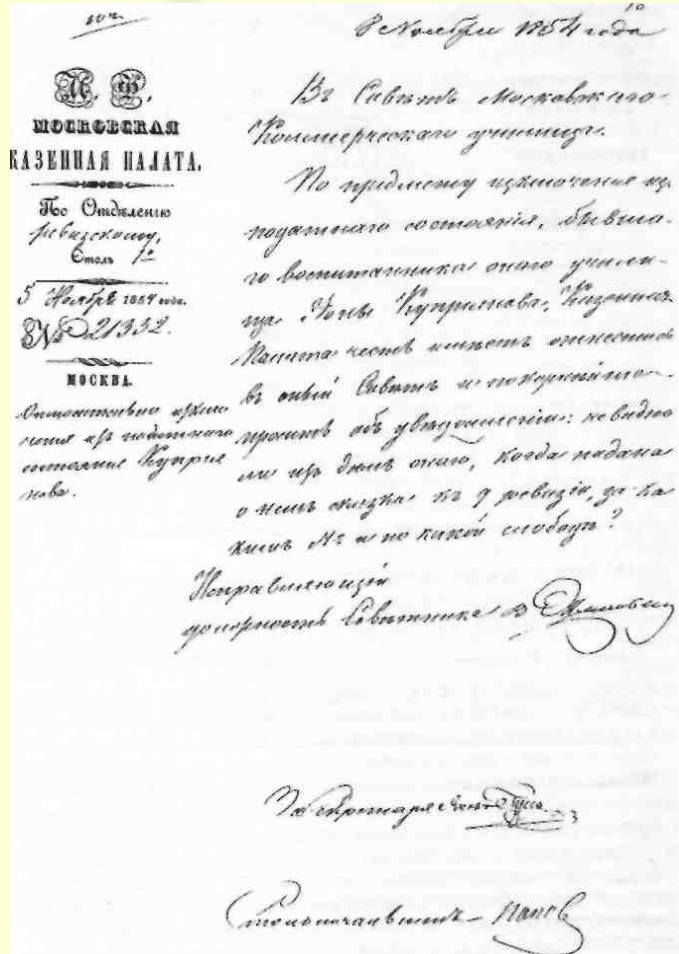 8 Ноября 1854 года
М. Ф.
МОСКОВСКАЯ
КАЗЕННАЯ ПАЛАТА.
По Отделению
ревизскому,
Столъ 1º
5 Ноября 1854 года.
№ 21332.
МОСКВА.
Относительно исклю
чения изъ податнаго
состоянія Куприя
нова.
Въ Совѣтъ Московскаго
Коммерческаго училища.
По предмету исключенія из
податнаго состоянія, бывша-
го воспитанника онаго учили-
ща Куприянова, Казенная
Палата честь имѣетъ отнестись
въ оный Совѣтъ и покорнѣйше
просить объ увѣдомленіи: не видно
ли изъ дѣлъ онаго, когда подана
о немъ сказка къ 9 ревизіи, за ка
кимъ № и по какой слободѣ?
Исправляющій
должность Совѣтника
За Секретаря
Столоначальникъ